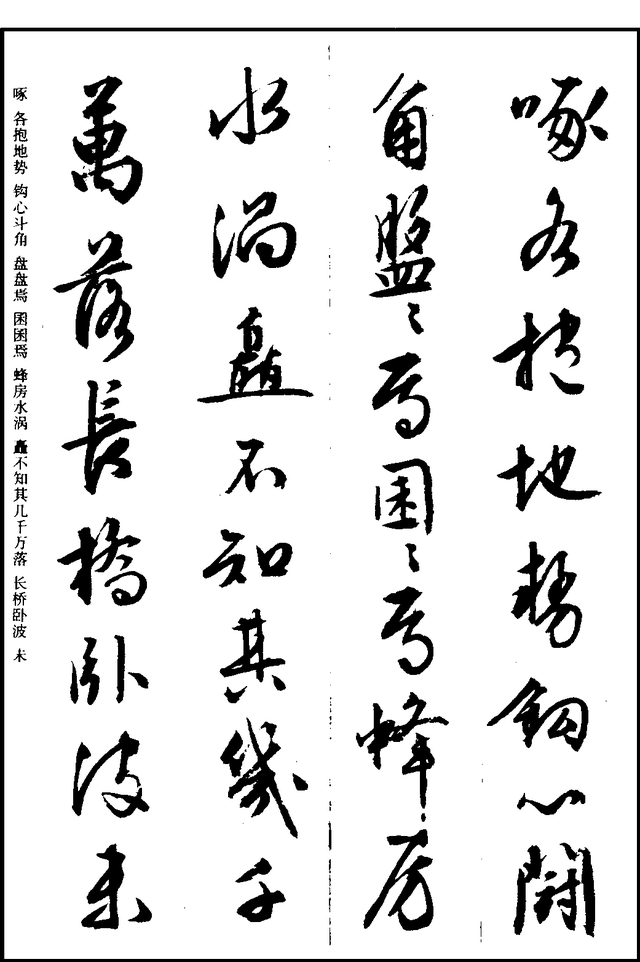 啄各抱地勢鉤心鬭
角盤〻焉囷〻焉蜂房
水渦矗不知其幾千
萬落長橋卧波未
啄 各抱地势 钩心斗角 盘盘焉 囷囷焉 蜂房水涡 矗不知其几千万落 长桥卧波 未